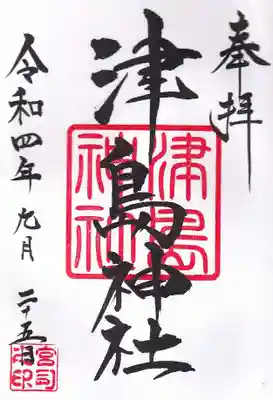 奉拝
津島神社
津島神社
令和四年九月二十五日
宮司之印